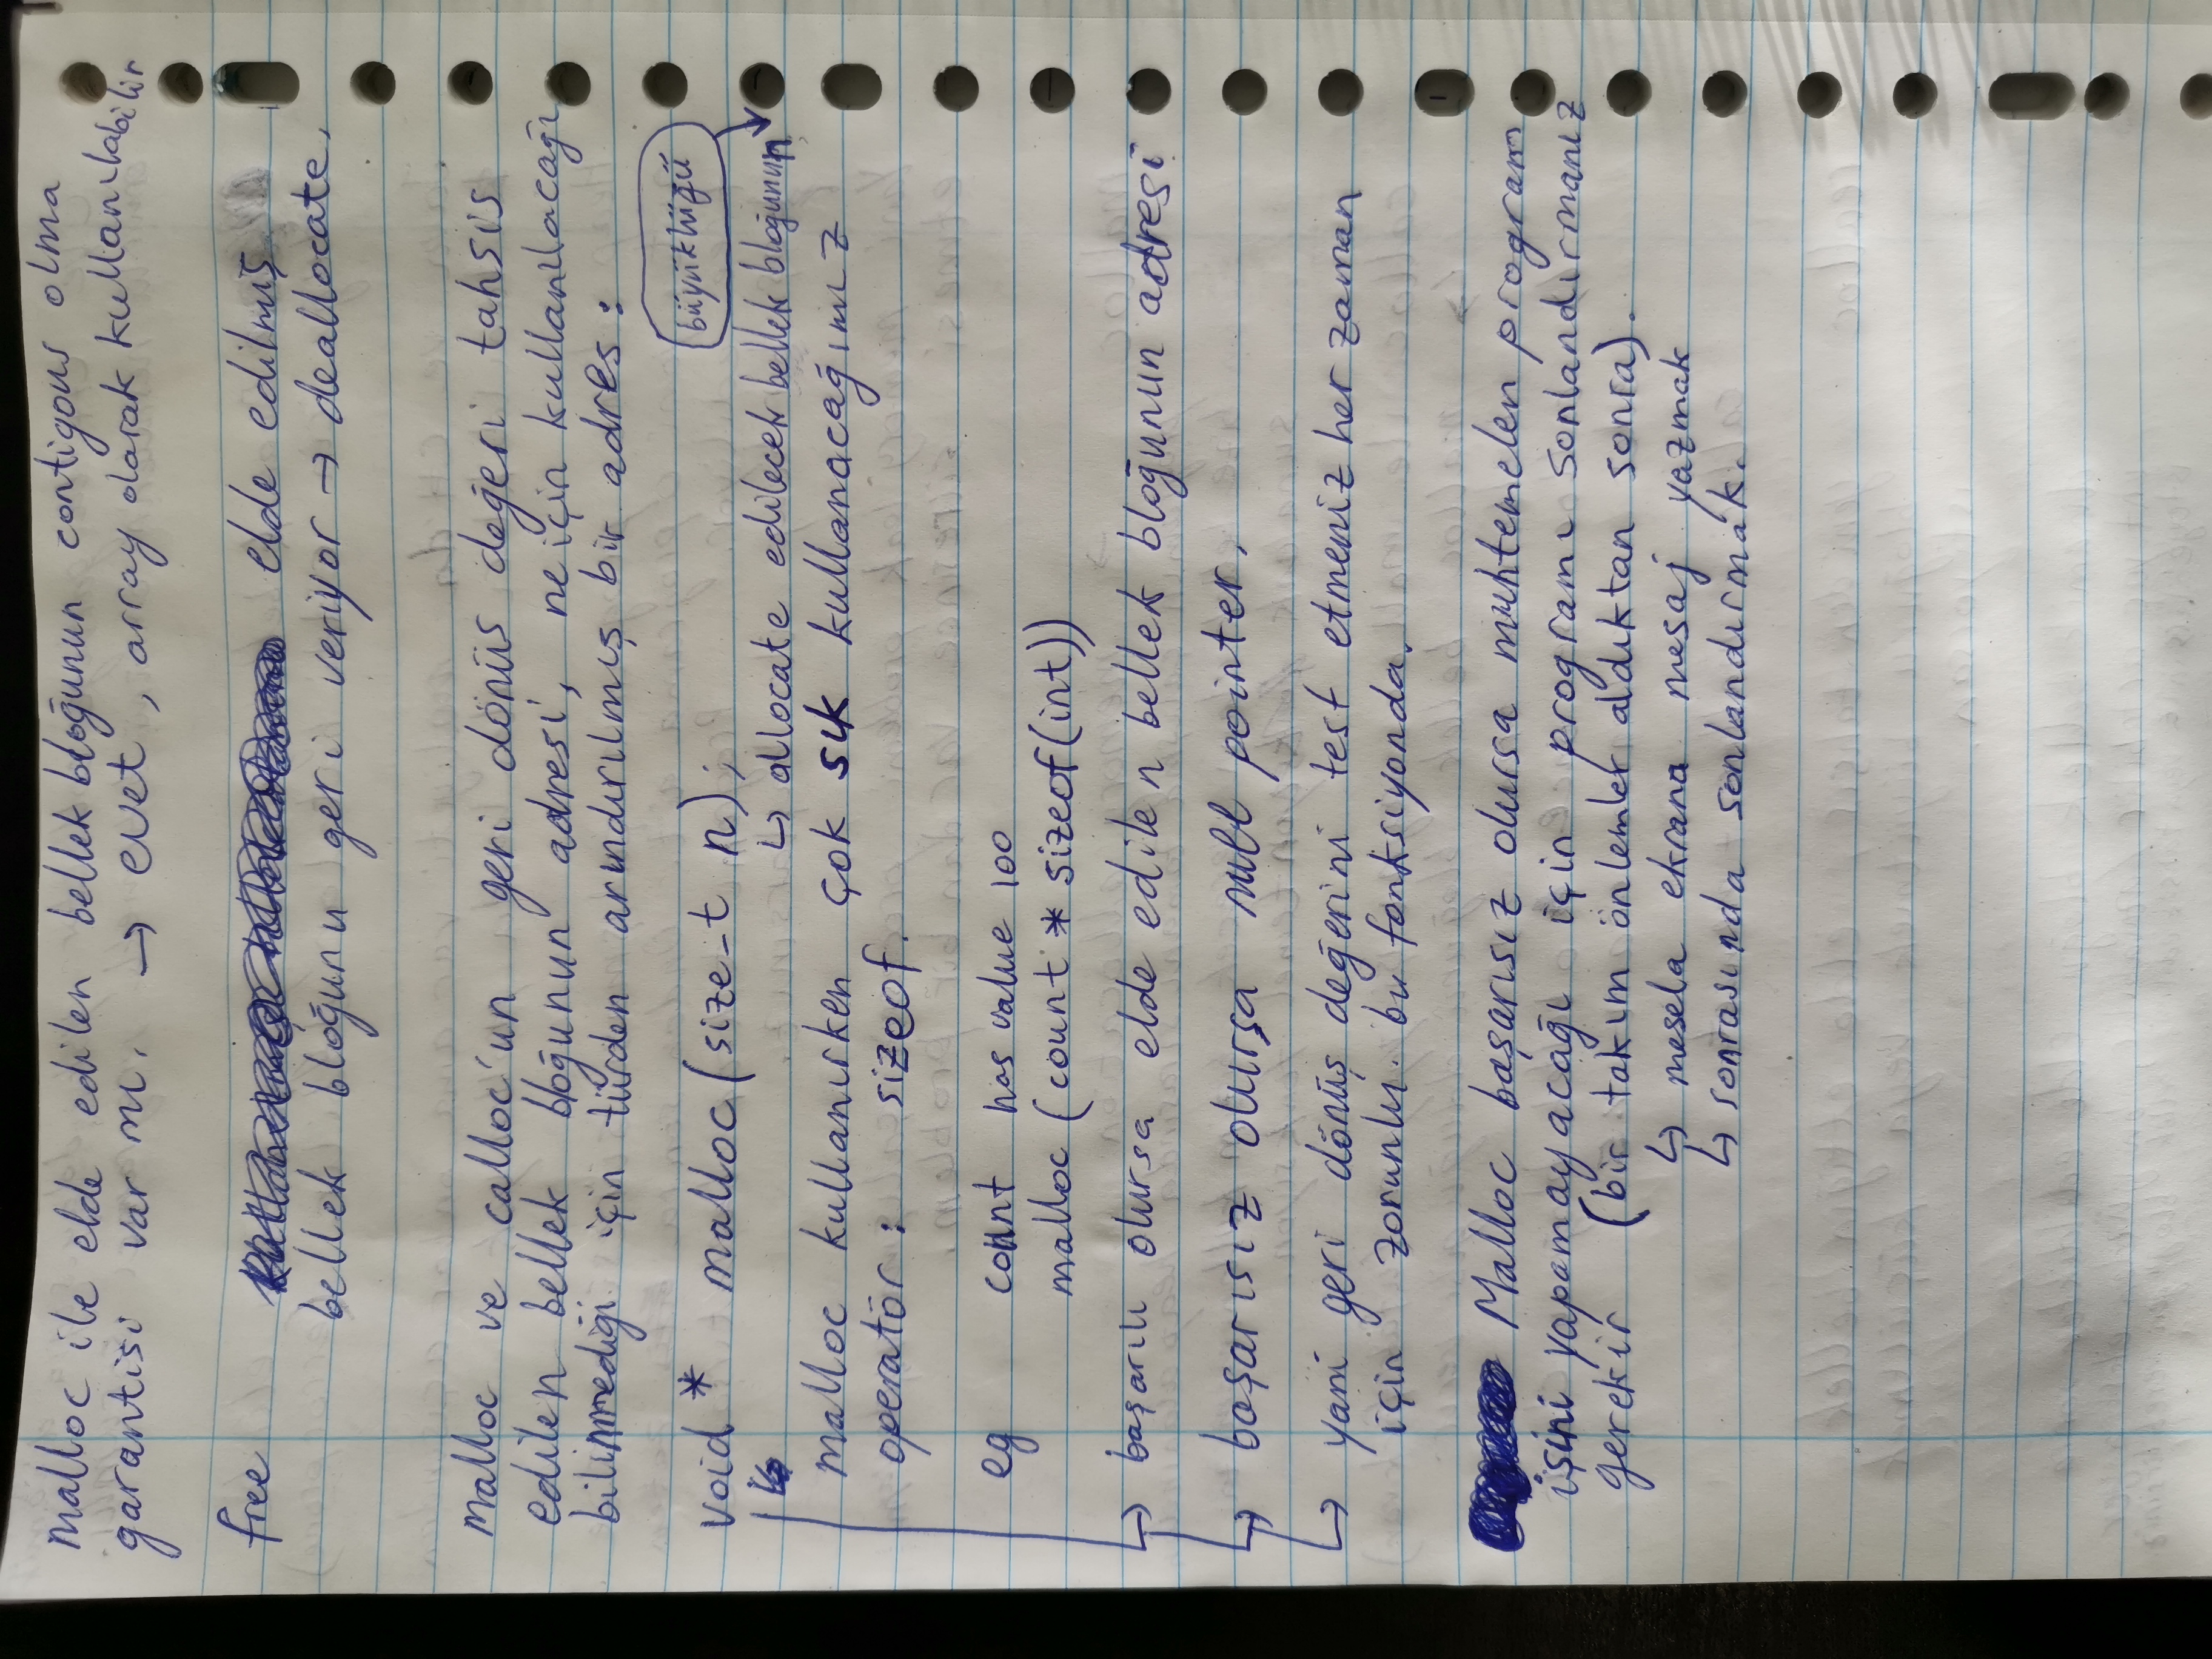 malloc ile elde edilen bellek bloğunun contigous olma
garantisi var mı. → evet, array olarak kullanılabilir
free elde edilmiş
bellek bloğunu geri veriyor → deallocate.
malloc ve calloc'un geri dönüş değeri tahsis
edilen bellek bloğunun adresi, ne için kullanılacağı
bilinmediği için türden arındırılmış bir adres :
büyüklüğü
void * malloc(size_t n);
↳ allocate edilecek bellek bloğunun
malloc kullanırken çok sık kullanacağımız
operatör : sizeof.
eg count has value 100
malloc (count * sizeof(int))
↳ başarılı olursa elde edilen bellek bloğunun adresi
↳ başarısız olursa null pointer.
↳ yani geri dönüş değerini test etmeniz her zaman
için zorunlu. bu fonksiyonda.
Malloc başarısız olursa muhtemelen program
işini yapamayacağı için programı sonlandırmanız
gerekir (bir takım önlemler aldıktan sonra).
↳ mesela ekrana mesaj yazmak
↳ sonrasında sonlandırmak.